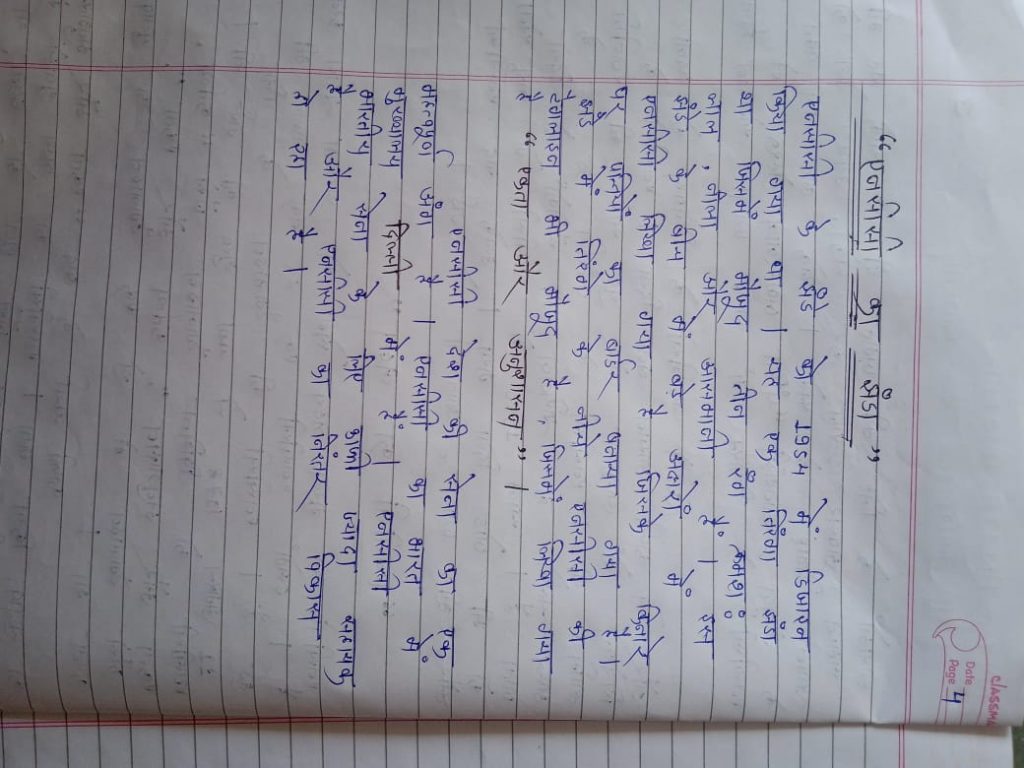 classm
Date
Page 4
"एनसीसी का झंडा"
एनसीसी के झंडे को 1954 में डिजाइन
किया गया था। यह एक तिरंगा झंडा
था जिसमें मौजूद तीन रंग क्रमशः
लाल, नीला और आसमानी हैं। इस
झंडे के बीच में बड़े अक्षरों में
एनसीसी लिखा गया है जिसके किनारे
पर पत्तियों का बॉर्डर बनाया गया है।
झंडे में तिरंगे के नीचे एनसीसी की
स्लोगन भी मौजूद है, जिसमें लिखा गया
है "एकता और अनुशासन"।
एनसीसी देश की सेना का एक
महत्वपूर्ण अंग है। एनसीसी का भारत में
मुख्यालय दिल्ली में हैं। एनसीसी
भारतीय सेना के लिए काफी ज्यादा सहायक
है और एनसीसी का निरंतर विकास
हो रहा है।